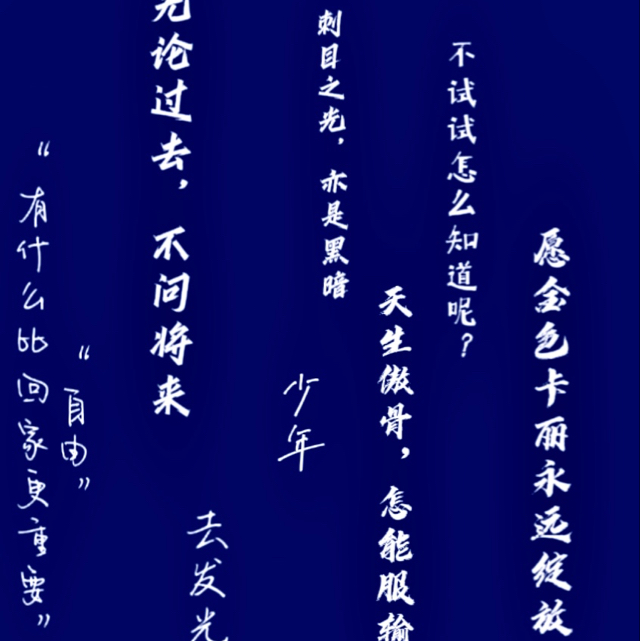 愿金色卡丽永远绽放
不试试怎么知道呢？
天生傲骨，怎能服输
刺目之光，亦是黑暗
少年
去发光
无论过去，不问将来
“自由”
“有什么比回家更重要”